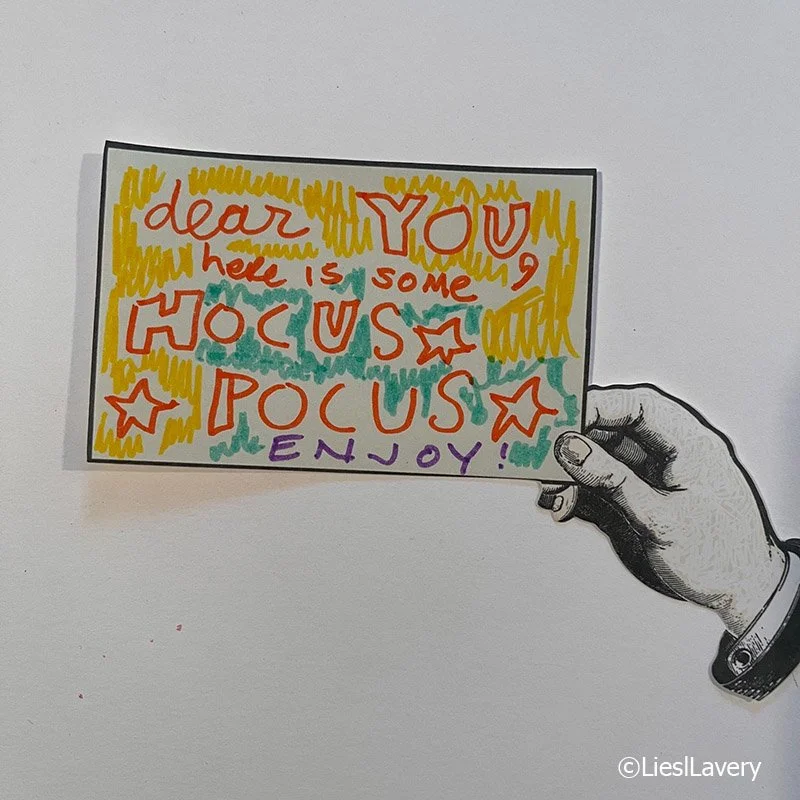 dear YOU,
here is some
HOCUS
POCUS
ENJOY!
©LieslLavery